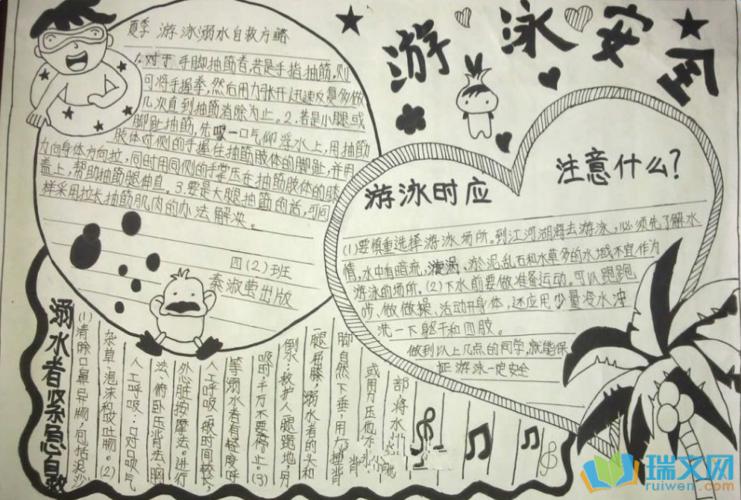 游泳安全
夏季 游泳溺水自救方略
1.对于手脚抽筋者,若是手指抽筋,则
可将手握拳,然后用力张开,迅速反复多做
几次直到抽筋消除为止。2.若是小腿或
脚趾抽筋,先吸一口气仰浮水上,用抽筋
肢体对侧的手握住抽筋肢体的脚趾,并用
力向身体方向拉,同时用同侧的手掌压在抽筋肢体的膝
盖上,帮助抽筋腿伸直。3.要是大腿抽筋的话,可同
样采用拉长抽筋肌肉的办法解决。
四(2)班
秦淑萤出版
游泳时应
注意什么?
(1)要慎重选择游泳场所。到江河湖海去游泳,必须先了解水
情,水中有暗流、漩涡、淤泥、乱石和水草多的水域不宜作为
游泳的场所。(2)下水前要做准备运动。可以跑跑
步、做做操,活动开身体,还应用少量冷水冲
洗一下躯干和四肢。
做到以上几点的同学,就能保
证游泳一定安全
溺水者紧急自救
(1)清除口鼻异物,包括泥沙
杂草、泡沫和呕吐物。(2)
人工呼吸:口对口吹气
法、俯卧压背法、胸
外心脏按摩法。进行
人工呼吸
等溺水者有轻度呼
吸时千万不要停止。(3)
倒水:救护人
一腿
溺水者的头和
脚自然下垂,用力
或用力压
部将水
瑞文网
ruiwen.com